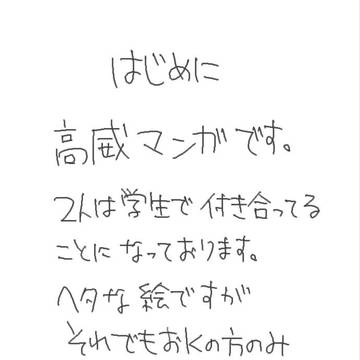 はじめに
高威マンガです。
2人は学生で付き合ってる
ことになっております。
ヘタな絵ですが
それでもおKの方のみ